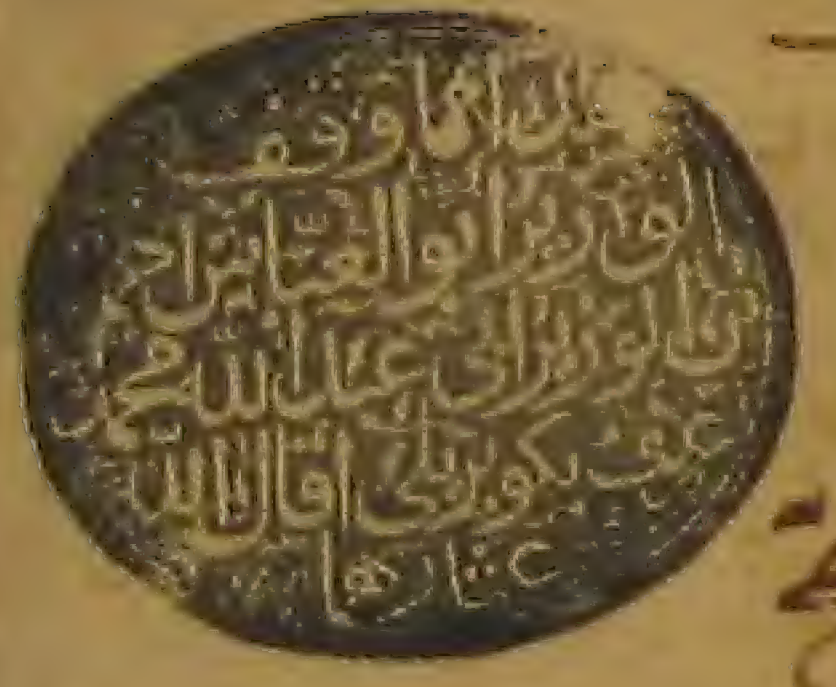 وقف
الوزير ابو العباس احمد
بن الوزير ابي عبد الله محمد
عرف بكوپريلي اقال الله
عثارهما